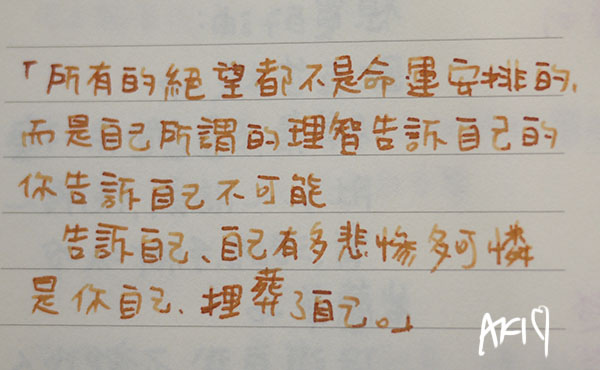 「所有的絕望都不是命運安排的,
而是自己所謂的理智告訴自己的
你告訴自己不可能
告訴自己、自己有多悲慘多可憐
是你自己、埋葬了自己。」
AKI